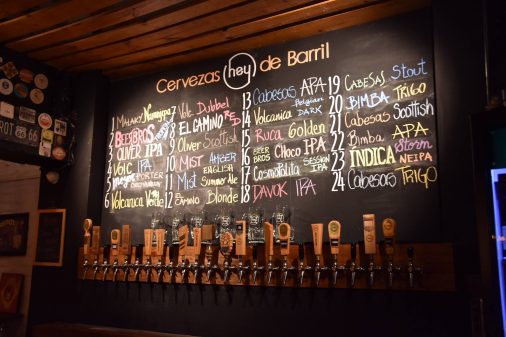 Cervezas hoy de Barril
1 Malaky
2 BEER BROS
3 OLIVER IPA
4 Volc IPA
5 PORTER
6 Volcanica Verde
7 Volc Dubbel
8 EL CAMINO RED
9 Oliver Scottish
10 Mist AMBER
11 Mist ENGLISH Summer Ale
12 CAMINO Blonde
13 Cabesas APA
14 Volcanica Belgian DARK
15 Ruca Golden
16 BEER BROS Choco IPA
17 Cosmopolita SESSION IPA
18 DAVOK IPA
19 CABESAS Stout
20 BIMBA TRIGO
21 Cabesas Scottish
22 Bimba APA
23 INDICA Storm NEIPA
24 Cabesas TRIGO
ROT 66